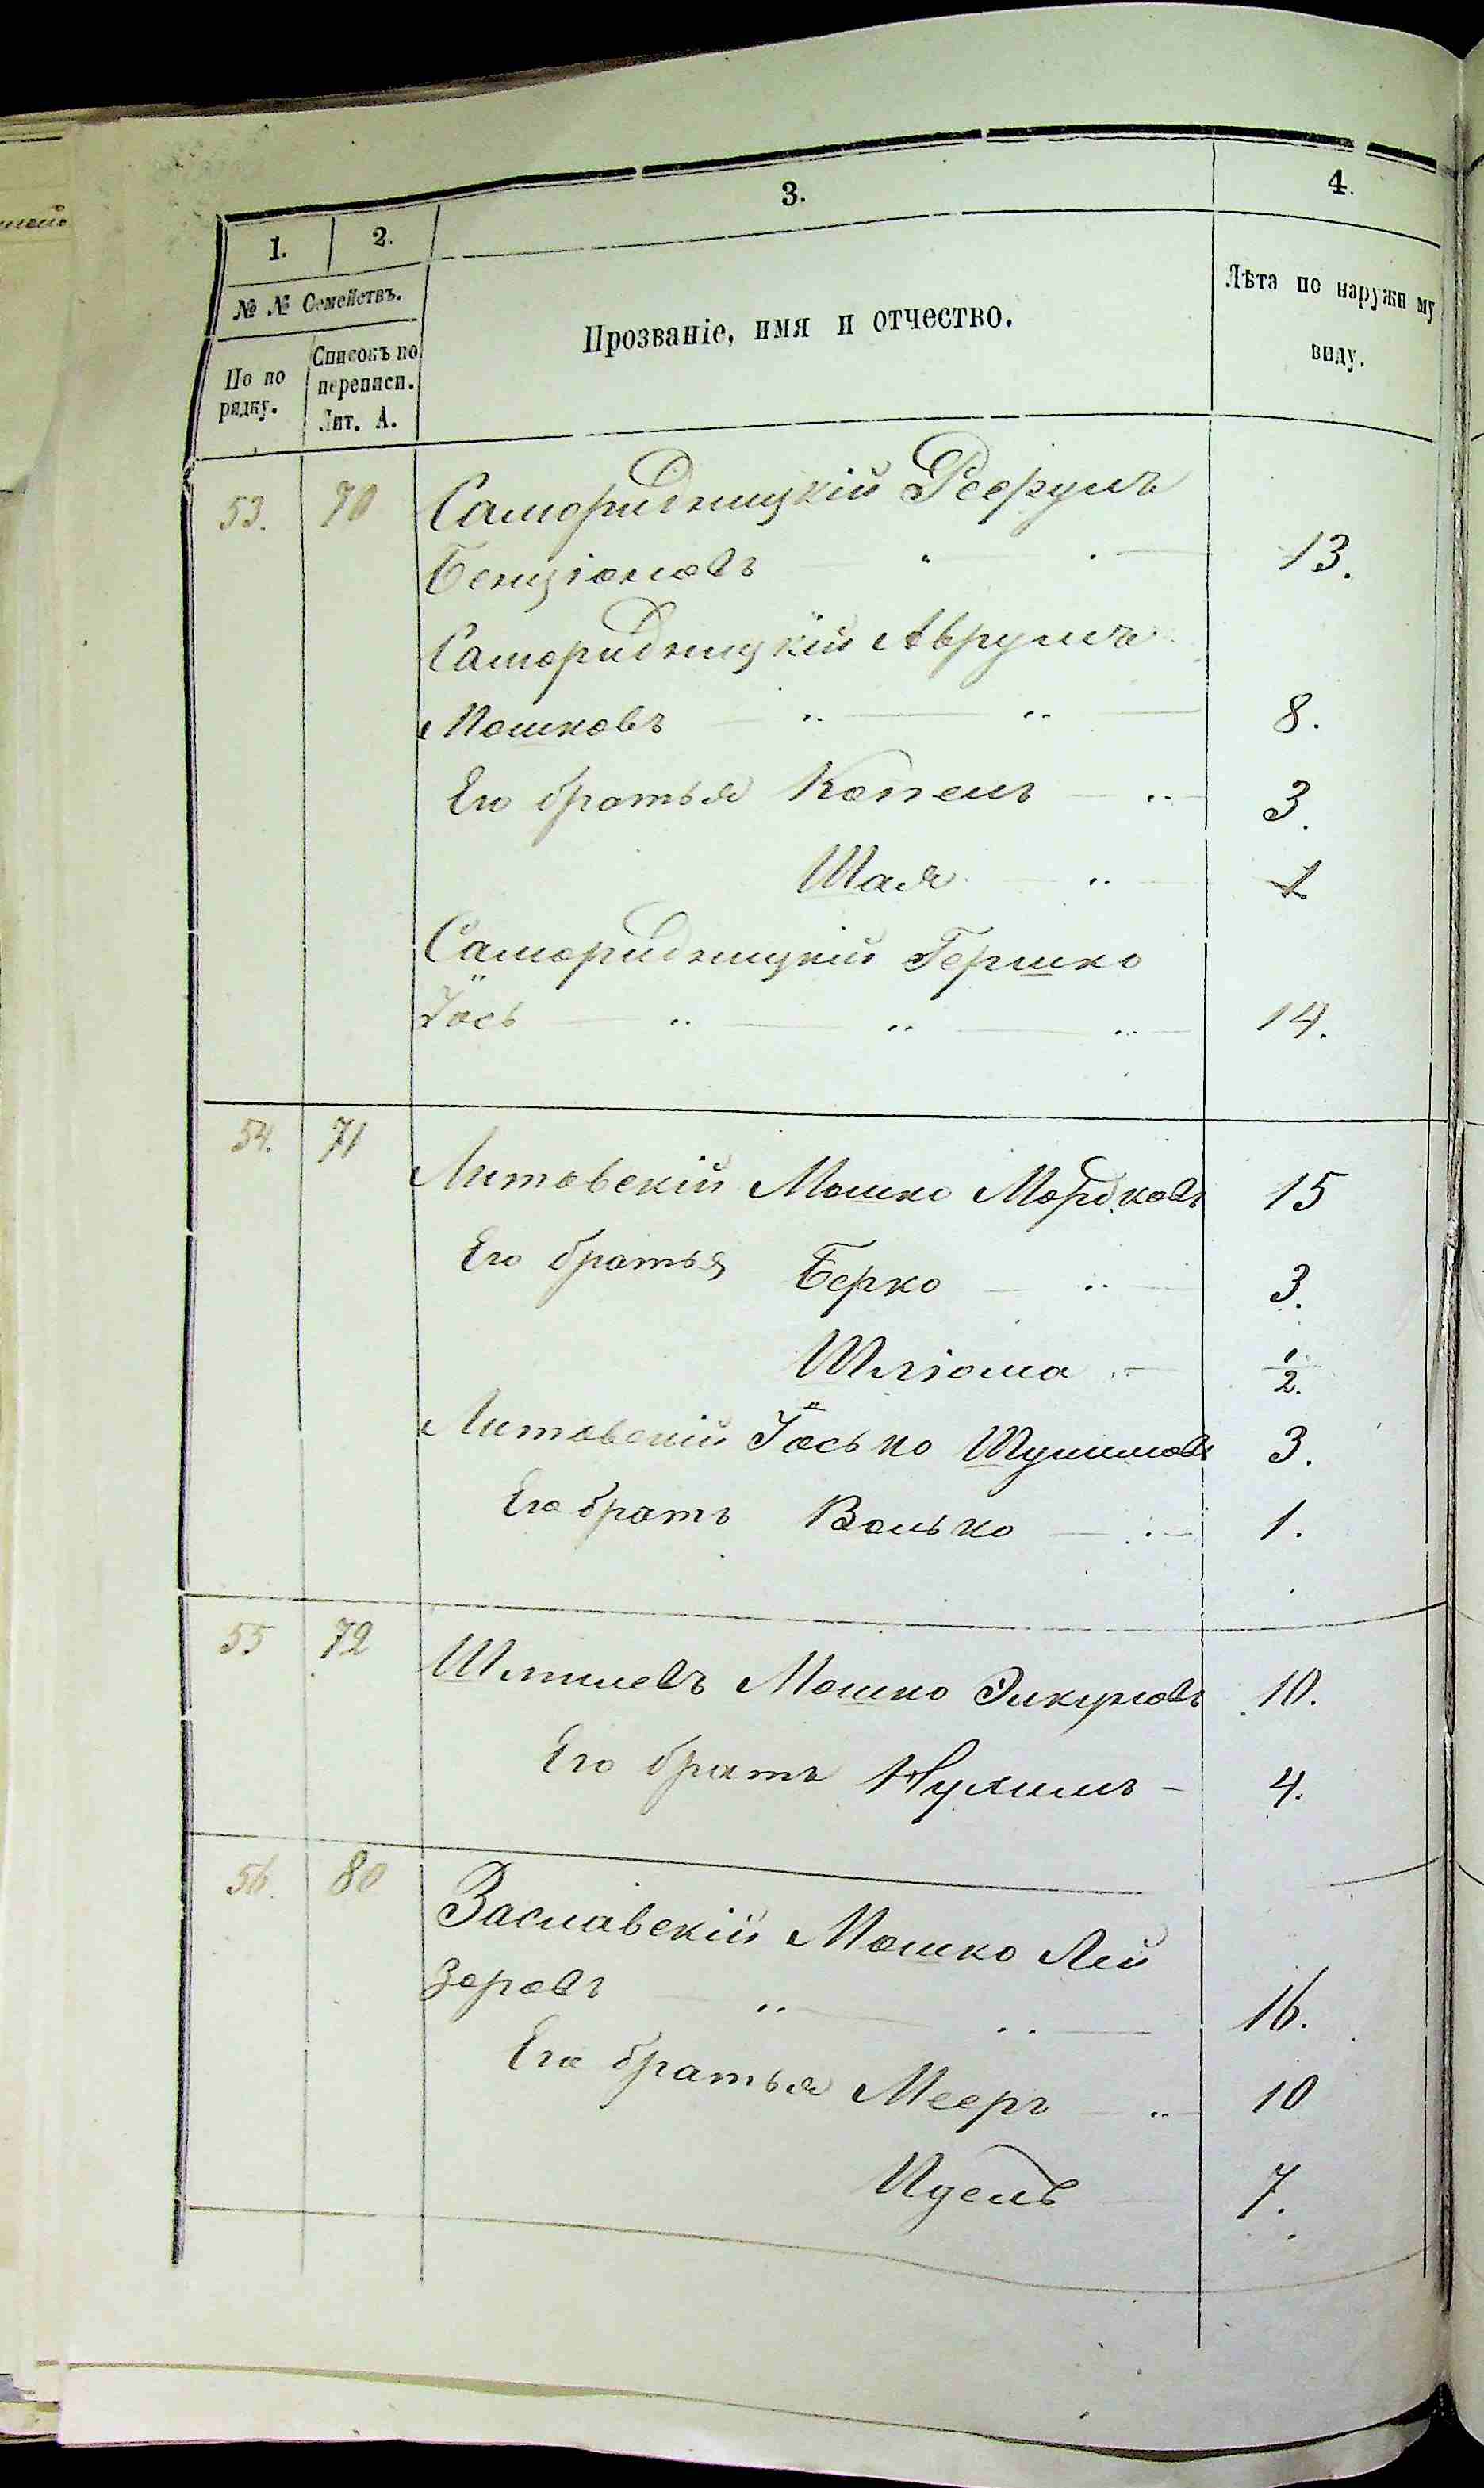 1.
2.
3.
4.
№ № Семействъ.
По по
рядку.
Списокъ по
переписи.
Лит. А.
Прозваніе, имя и отчество.
Лѣта по наружн му
виду.
53. 70 Саморидницкій
Бенціоновъ 13.
Саморидницкій Аврумъ
Мошковъ 8.
Его братья Копель 3.
Шая 1
Саморидницкій Гершко
Іось 14.
54. 71 Литовскій Мошко Мордковъ 15
Его братья Берко 3.
Шліома 1/2.
Литовскій Іосько 3.
Его братъ Волько 1.
55 72 Мошко 10.
Его братъ Нухимъ 4.
56. 80 Заславскій Мошко Лей
зеровъ 16.
Его братья Мееръ 10
Идель 7.